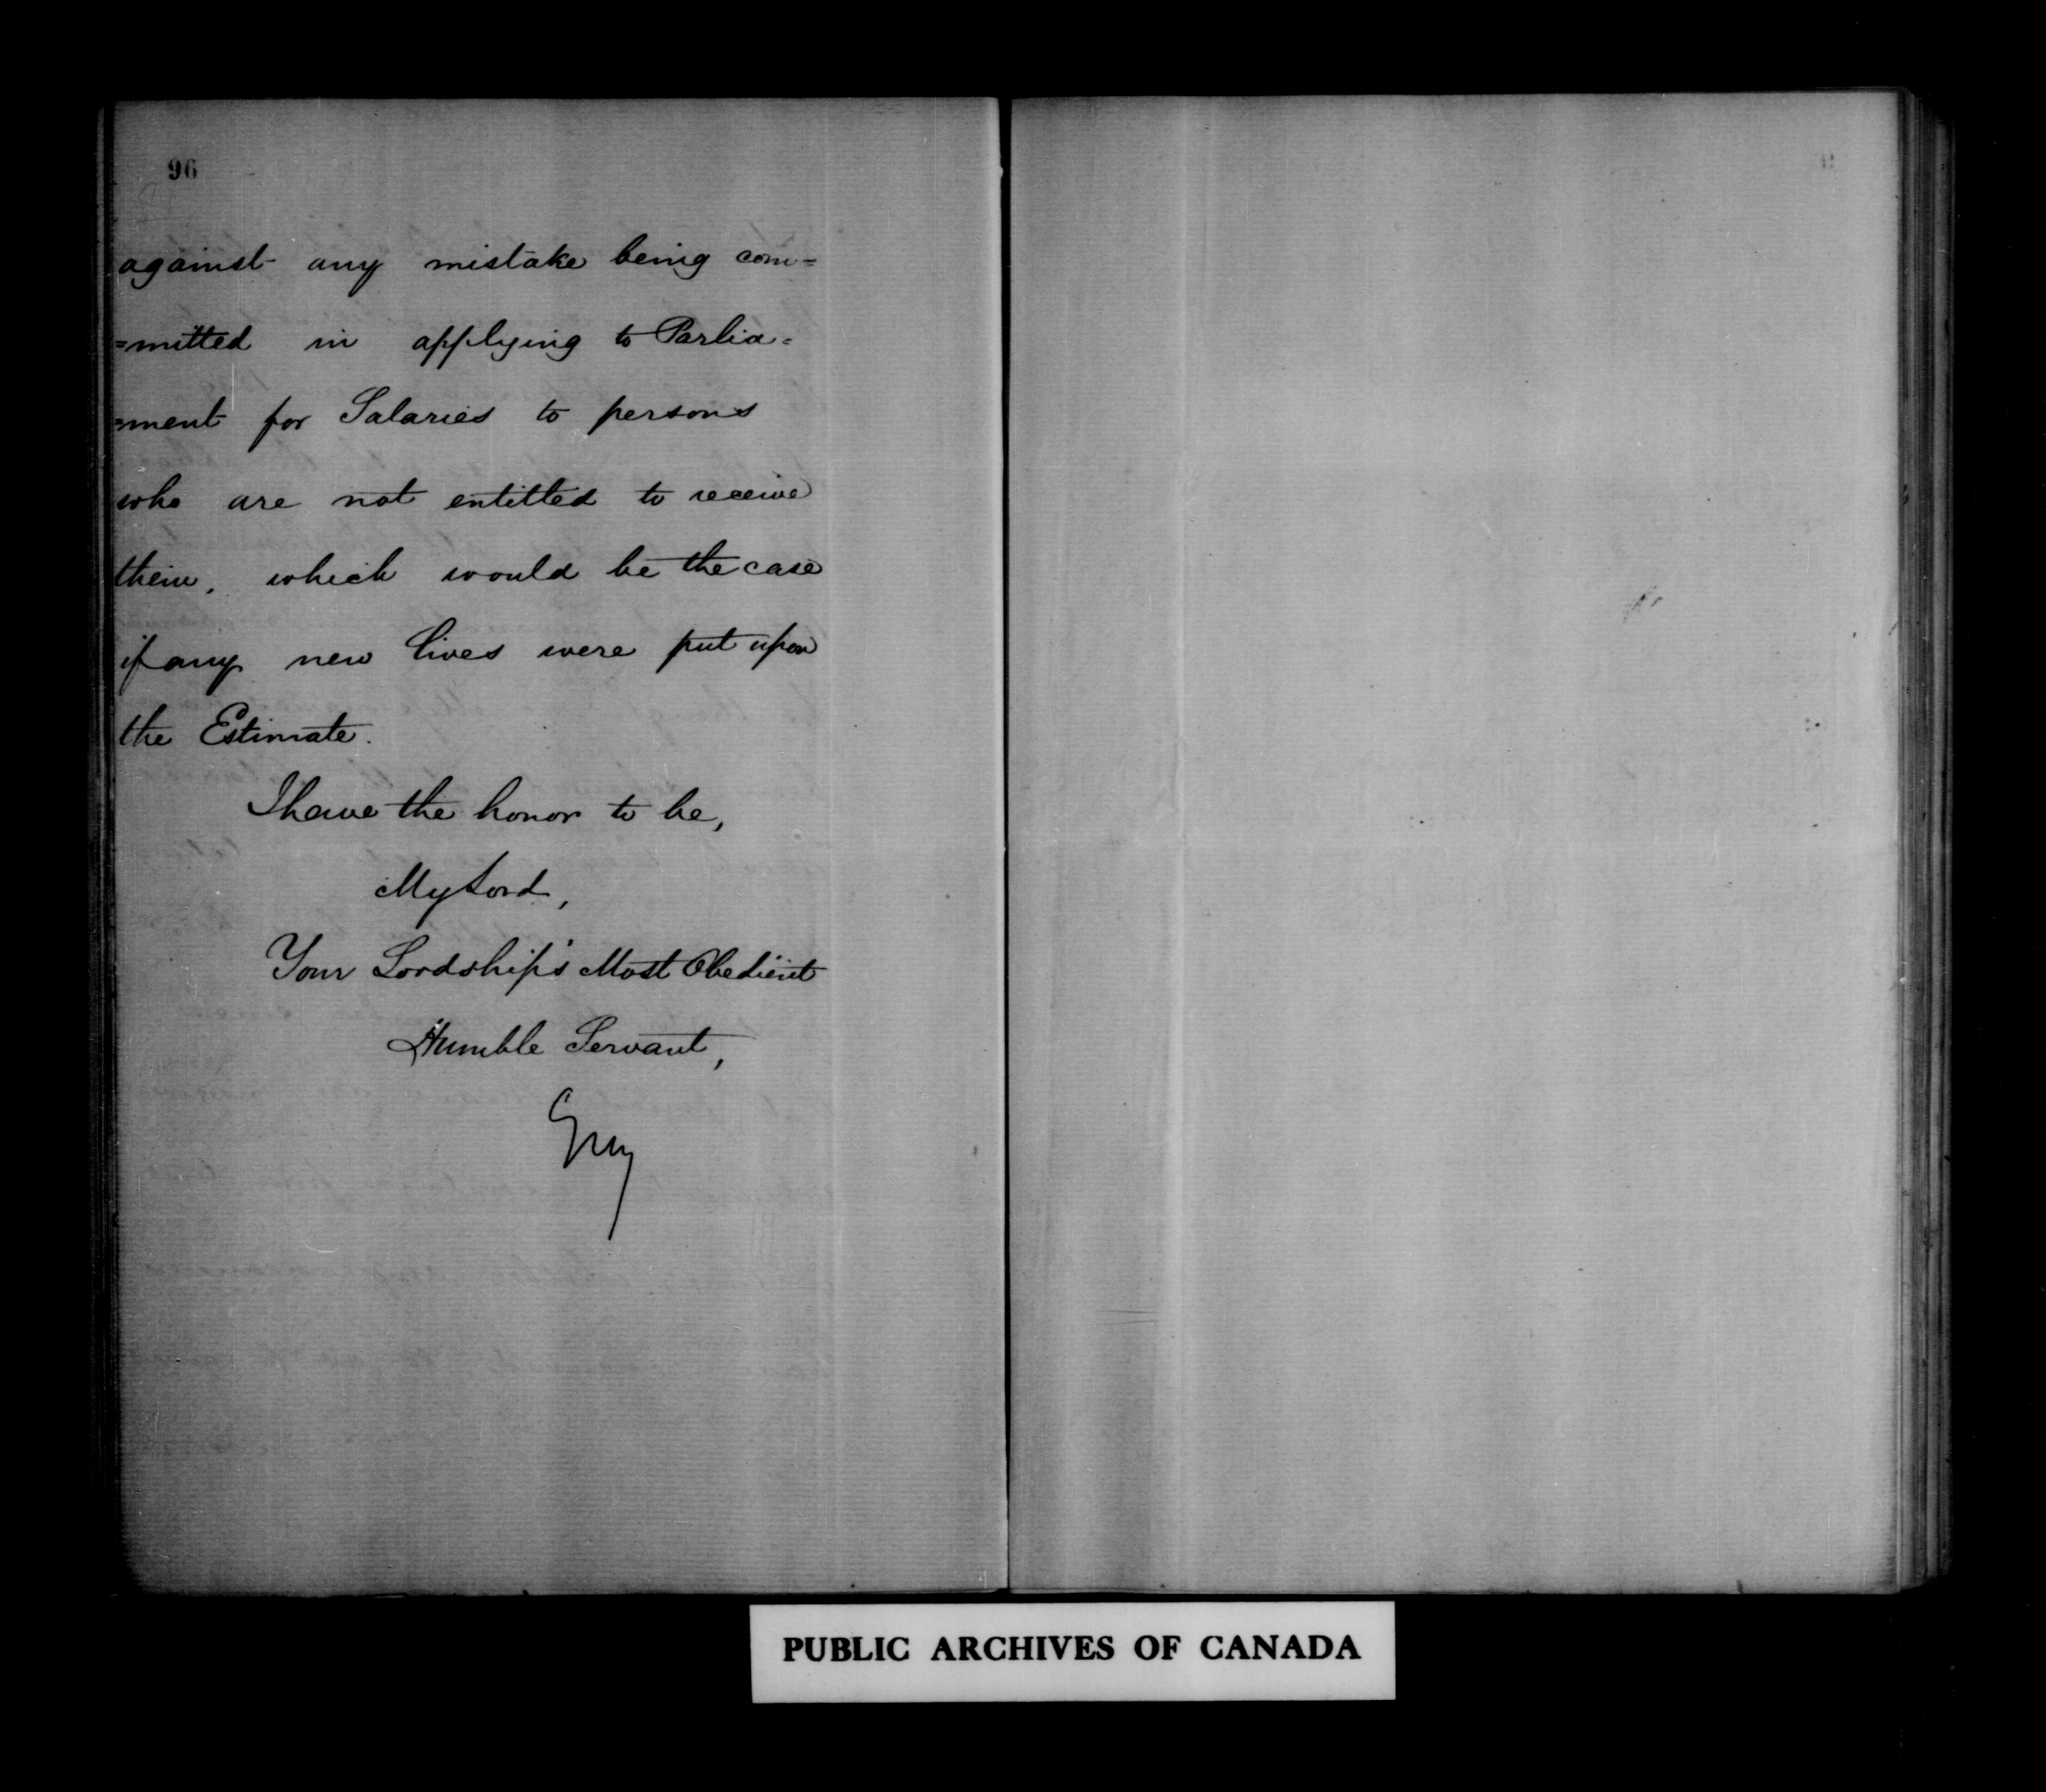 96
against any mistake being com=
=mitted in applying to Parlia=
=ment for Salaries to persons
who are not entitled to receive
them, which would be the case
if any new lives were put upon
the Estimate.
I have the honor to be,
My Lord,
Your Lordship's Most Obedient
Humble Servant,
Grey
PUBLIC ARCHIVES OF CANADA